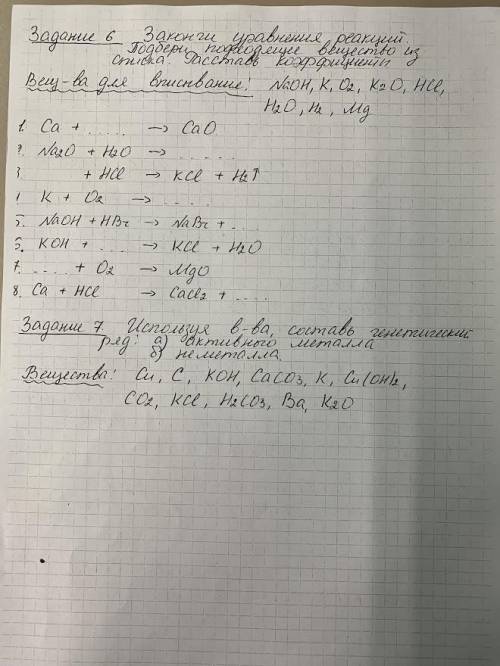 Задание 6 Закончи уравнения реакций.
Подбери подходящие вещество из
списка. Расставь коэффициенты
Вещ-ва для вписвание: NaOH, K, O2, K2O, HCl,
H2O, H2, Mg
1. Ca + .... → CaO
2. Na2O + H2O → .....
3. + HCl → KCl + H2↑
4. K + O2 → ....
5. NaOH + HBr → NaBr + ...
6. KOH + .... → KCl + H2O
7. .... + O2 → MgO
8. Ca + HCl → CaCl2 + ....
Задание 7. Используя в-ва, составь генетический
ряд: а) активного металла
б) неметалла.
Вещества: Cu, C, KOH, CaCO3, K, Cu(OH)2,
CO2, KCl, H2CO3, Ba, K2O